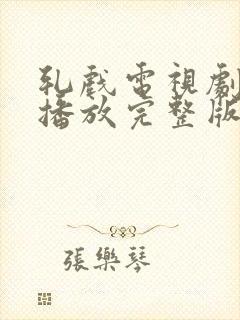 乳戲電視劇
播放完整版
張樂琴